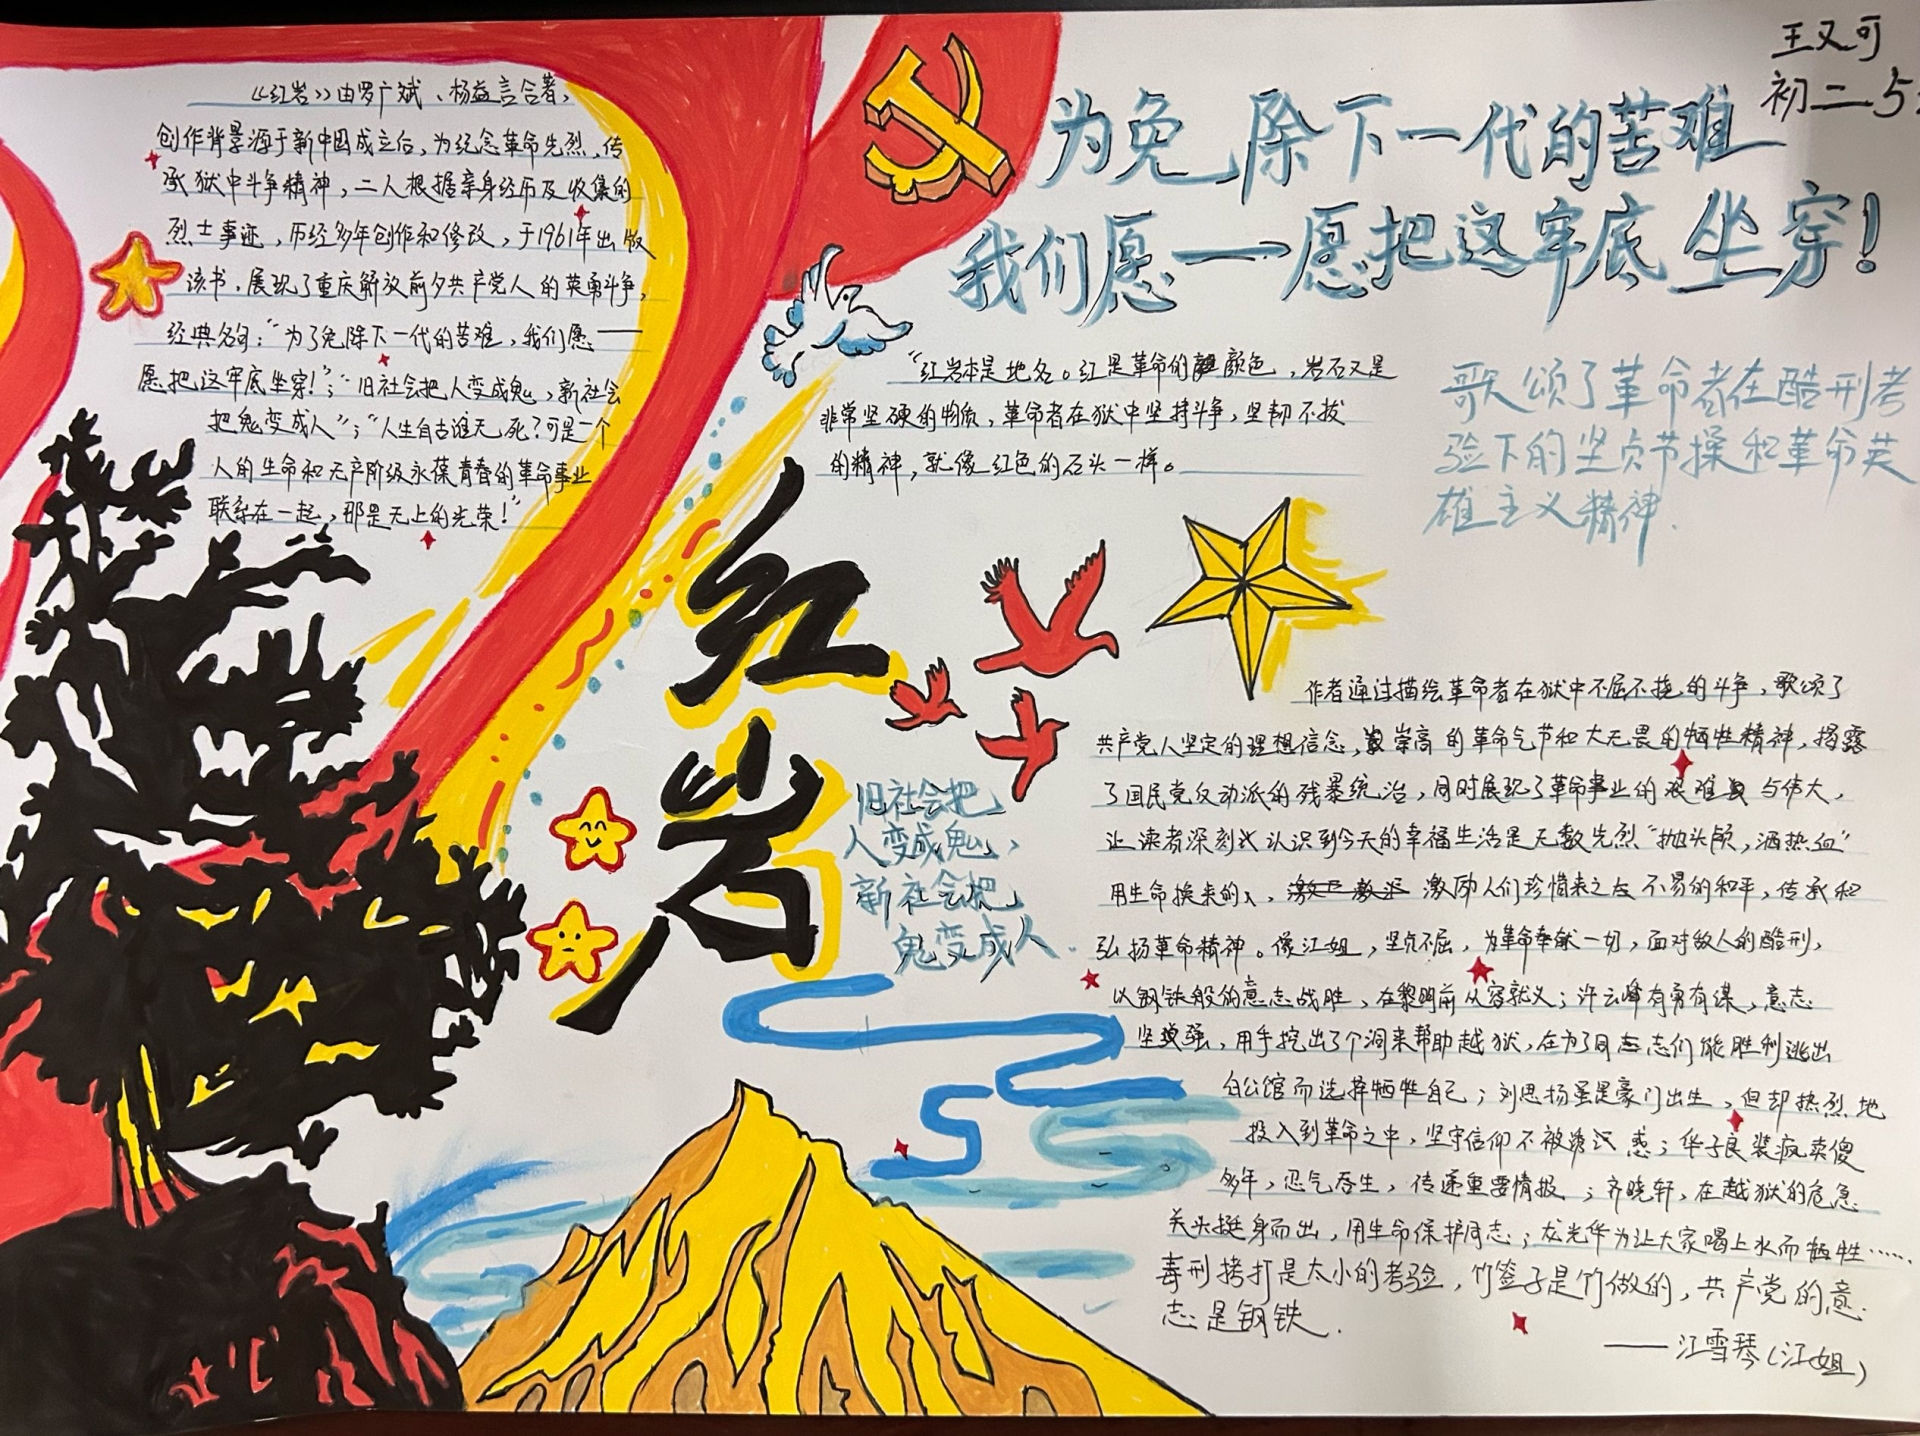 王又可
初二5
为免除下一代的苦难
我们愿——愿把这牢底坐穿！
《红岩》由罗广斌、杨益言合著，
创作背景源于新中国成立后，为纪念革命先烈，传
承狱中斗争精神，二人根据亲身经历及收集的
烈士事迹，历经多年创作和修改，于1961年出版
该书，展现了重庆解放前夕共产党人的英勇斗争，
经典名句：“为了免除下一代的苦难，我们愿——
愿把这牢底坐穿！”；“旧社会把人变成鬼，新社会
把鬼变成人”；“人生自古谁无死？可是一个
人的生命和无产阶级永葆青春的革命事业
联系在一起，那是无上的光荣！”
“红岩本是地名。红是革命的颜色，岩石又是
非常坚硬的物质，革命者在狱中坚持斗争，坚韧不拔
的精神，就像红色的石头一样。
歌颂了革命者在酷刑考
验下的坚贞节操和革命英
雄主义精神.
红
岩
旧社会把
人变成鬼、
新社会把
鬼变成人.
作者通过描绘革命者在狱中不屈不挠的斗争，歌颂了
共产党人坚定的理想信念，崇高的革命气节和大无畏的牺牲精神，揭露
了国民党反动派的残暴统治，同时展现了革命事业的艰难与伟大，
让读者深刻认识到今天的幸福生活是无数先烈“抛头颅，洒热血”
用生命换来的，激励人们珍惜来之不易的和平，传承和
弘扬革命精神。像江姐，坚贞不屈，为革命奉献一切，面对敌人的酷刑，
以钢铁般的意志战胜，在黎明前从容就义；许云峰有勇有谋，意志
坚强，用手挖出了个洞来帮助越狱，在为了同志们能胜利逃出
白公馆而选择牺牲自己；刘思扬虽是豪门出生，但却热烈地
投入到革命之中，坚守信仰不被诱惑；华子良装疯卖傻
多年，忍气吞生，传递重要情报；齐晓轩，在越狱的危急
关头挺身而出，用生命保护同志；龙光华为让大家喝上水而牺牲……
毒刑拷打是太小的考验，竹签子是竹做的，共产党的意
志是钢铁.
——江雪琴（江姐）